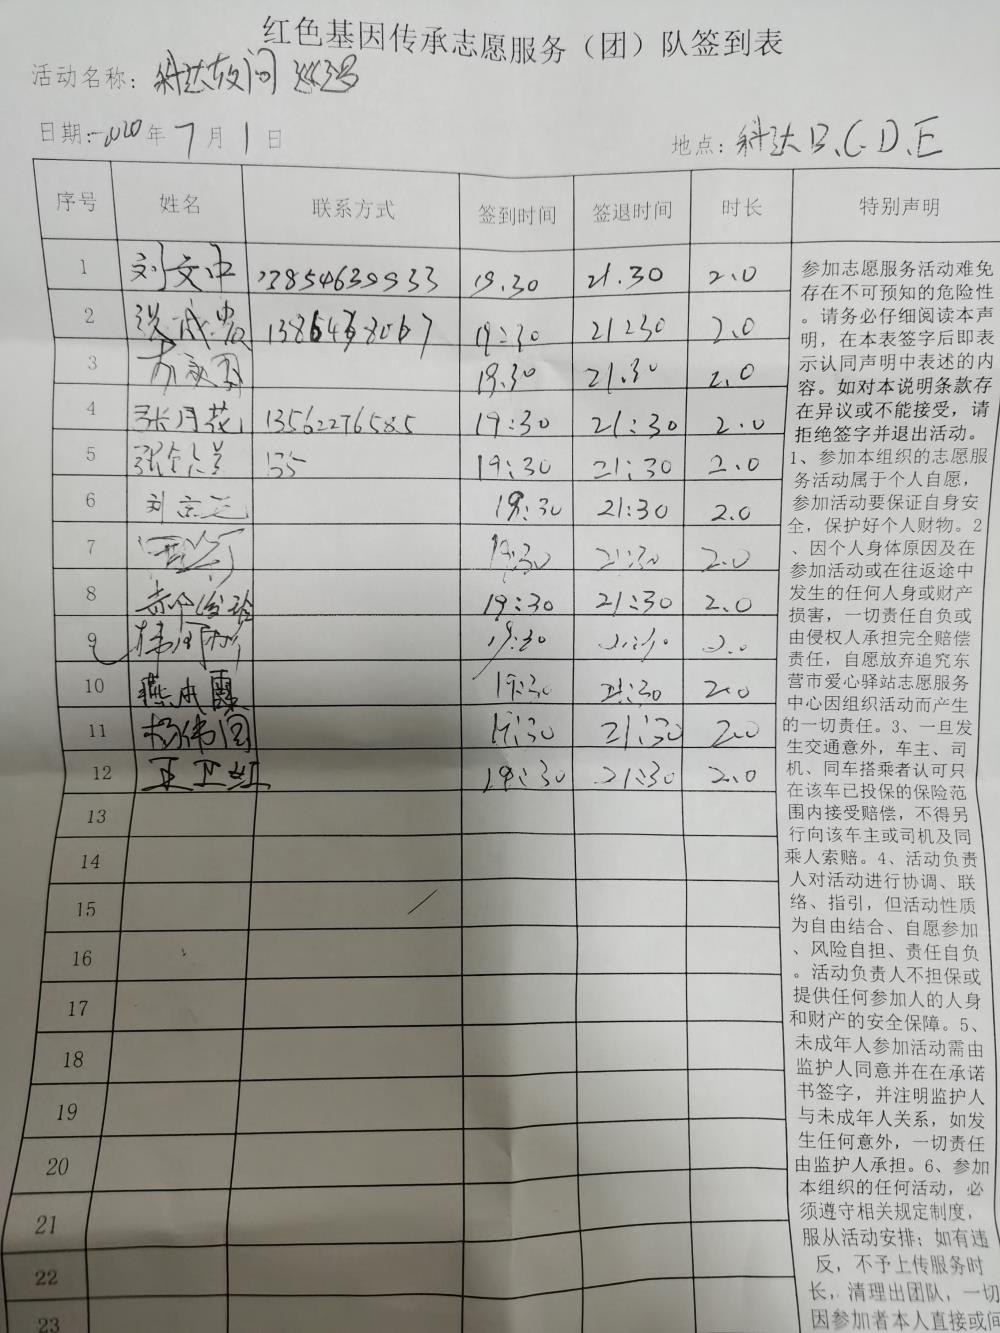 红色基因传承志愿服务（团）队签到表
活动名称：科达夜间巡逻
日期：2020年7月1日 地点：科达B、C、D、E
序号 姓名 联系方式 签到时间 签退时间 时长 特别声明
1 刘文中 13854639933 19.30 21.30 2.0
2 13864 8067 19:30 21:30 2.0
3 19.30 21.30 2.0
4 张月花 13562276585 19:30 21:30 2.0
5 135 19:30 21:30 2.0
6 刘京 19:30 21:30 2.0
7 19:30 21:30 2.0
8 19:30 21:30 2.0
9 19:30 21:30 2.0
10 燕成霞 19:30 21:30 2.0
11 杨伟国 19:30 21:30 2.0
12 王卫红 19:30 21:30 2.0
13
14
15
16
17
18
19
20
21
22
23
参加志愿服务活动难免
存在不可预知的危险性
。请务必仔细阅读本声
明，在本表签字后即表
示认同声明中表述的内
容。如对本说明条款存
在异议或不能接受，请
拒绝签字并退出活动。
1、参加本组织的志愿服
务活动属于个人自愿，
参加活动要保证自身安
全，保护好个人财物。2
、因个人身体原因及在
参加活动或在往返途中
发生的任何人身或财产
损害，一切责任自负或
由侵权人承担完全赔偿
责任，自愿放弃追究东
营市爱心驿站志愿服务
中心因组织活动而产生
的一切责任。3、一旦发
生交通意外，车主、司
机、同车搭乘者认可只
在该车已投保的保险范
围内接受赔偿，不得另
行向该车主或司机及同
乘人索赔。4、活动负责
人对活动进行协调、联
络、指引，但活动性质
为自由结合、自愿参加
、风险自担、责任自负
。活动负责人不担保或
提供任何参加人的人身
和财产的安全保障。5、
未成年人参加活动需由
监护人同意并在在承诺
书签字，并注明监护人
与未成年人关系，如发
生任何意外，一切责任
由监护人承担。6、参加
本组织的任何活动，必
须遵守相关规定制度，
服从活动安排；如有违
反，不予上传服务时
长，清理出团队，一切
因参加者本人直接或间